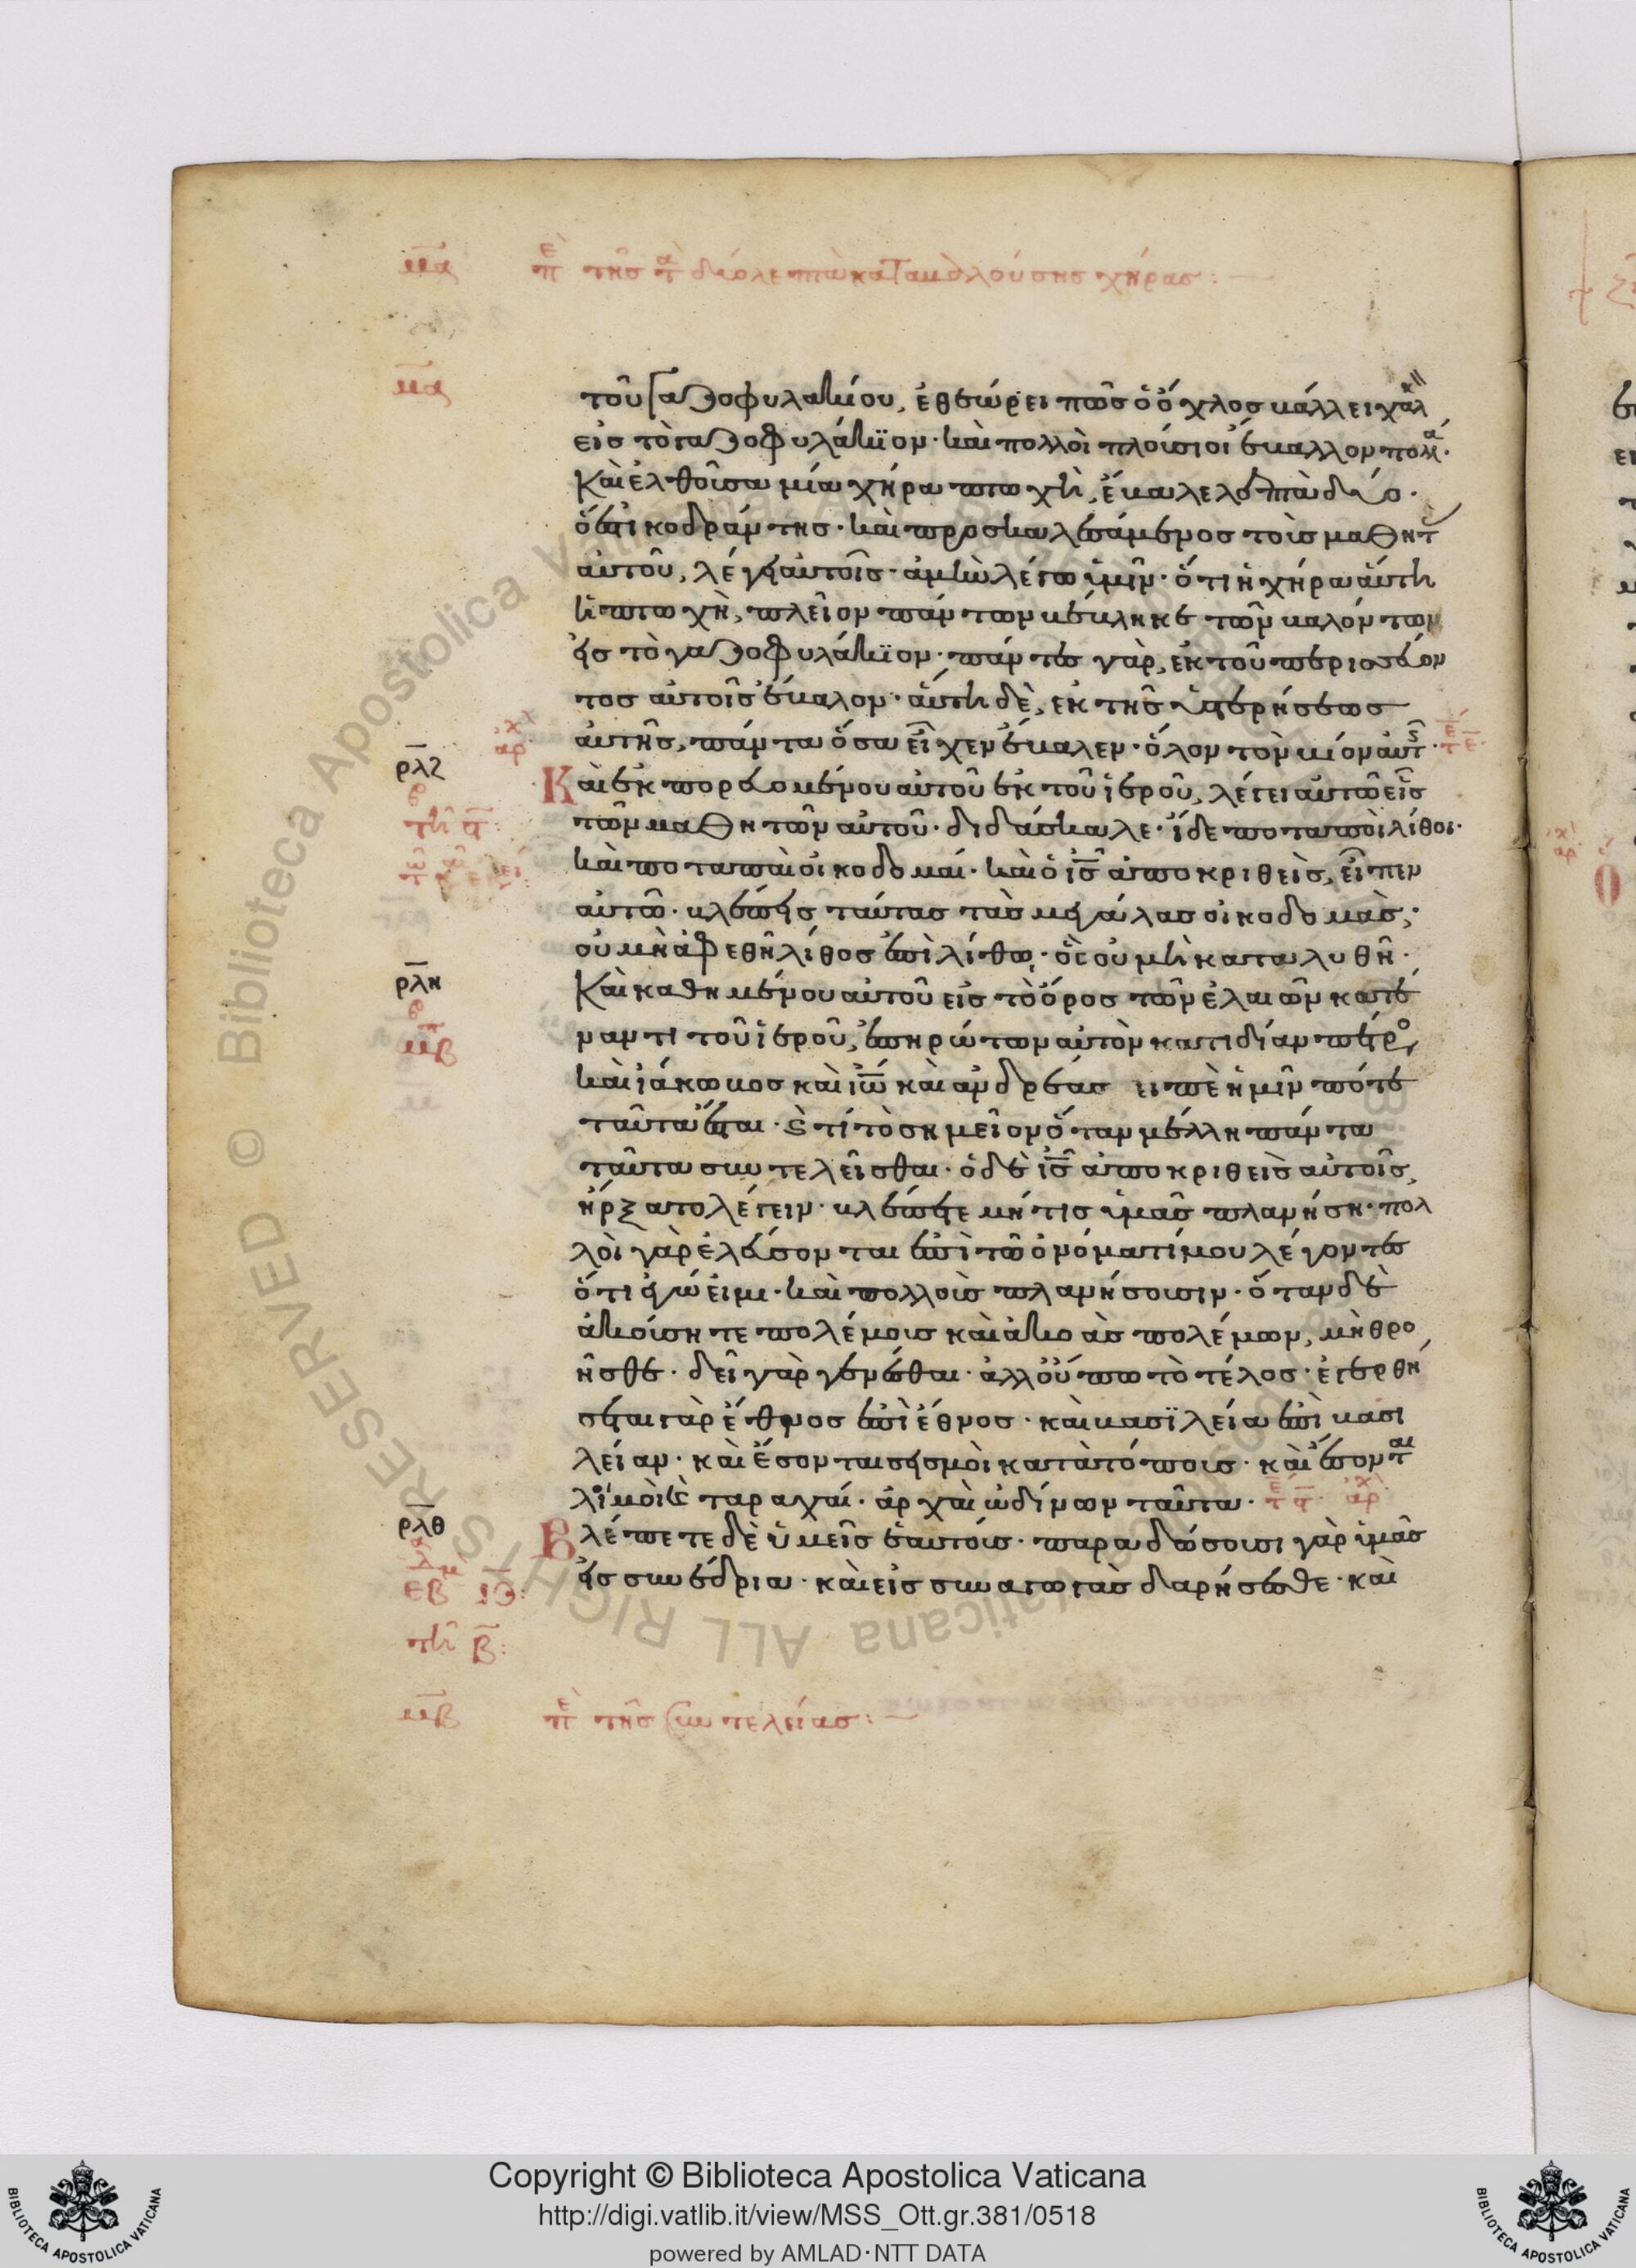 μα περὶ τῆς τὰ δύο λεπτὰ καταβαλούσης χήρας:
μα
τοῦ γαζοφυλακίου, ἐθεώρει πῶς ὁ ὄχλος βάλλει χαλ
εἰς τὸ γαζοφυλάκϊον· καὶ πολλοὶ πλούσιοι ἔβαλλον πολλά·
Καὶ ἐλθοῦσα μία χήρα πτωχὴ, ἔβαλε λεπτὰ δύο·
ὅ ἐστι κοδράντης· καὶ προσκαλεσάμενος τοὺς μαθητ
αὐτοῦ, λέγει αὐτοῖς· ἀμὴν λέγω ὑμῖν· ὅτι ἡ χήρα αὕτη
ἡ πτωχὴ, πλεῖον πάντων βέβληκε τῶν βαλόντων
εἰς τὸ γαζοφυλάκϊον· πάντες γὰρ, ἐκ τοῦ περισσεύον
τος αὐτοῖς ἔβαλον· αὕτη δὲ, ἐκ τῆς ὑστερήσεως
αὐτῆς, πάντα ὅσα εἶχεν ἔβαλεν· ὅλον τὸν βίον αὐτ·
ρλζ
Καὶ ἐκπορευομένου αὐτοῦ ἐκ τοῦ ἱεροῦ, λέγει αὐτῶ εἷς
τῶν μαθητῶν αὐτοῦ· διδάσκαλε· ἴδε ποταποὶ λίθοι·
καὶ ποταπαὶ οἰκοδομαί· καὶ ὁ ις ἀποκριθεὶς, εἶπεν
αὐτῶ· βλέπεις ταύτας τὰς μεγάλας οἰκοδομάς;
οὐ μὴ ἀφεθῆ λίθος ἐπὶ λίθω· ὃς οὐ μὴ καταλυθῆ·
ρλη
Καὶ καθημένου αὐτοῦ εἰς τὸ ὄρος τῶν ἐλαιῶν κατέ
ναντι τοῦ ἱεροῦ, ἐπηρώτων αὐτὸν κατιδίαν πέτρο
μβ
καὶ ἰάκωβος καὶ ιω καὶ ἀνδρέας εἰπὲ ἡμῖν πότε
ταῦτα ἔσται· καὶ τί τὸ σημεῖον ὅταν μέλλη πάντα
ταῦτα συντελεῖσθαι· ὁ δὲ ις ἀποκριθεὶς αὐτοῖς,
ἤρξατο λέγειν· βλέπετε μή τις ὑμᾶς πλανήση· πολ
λοὶ γὰρ ἐλεύσονται ἐπὶ τῶ ὀνόματί μου λέγοντες
ὅτι ἐγώ εἰμι· καὶ πολλοὺς πλανήσουσιν· ὅταν δὲ
ἀκούσητε πολέμους καὶ ἀκοὰς πολέμων, μὴ θρο
ῆσθε· δεῖ γὰρ γενέσθαι· ἀλλ οὔπω τὸ τέλος· ἐγερθή
σεται γὰρ ἔθνος ἐπὶ ἔθνος· καὶ βασϊλεία ἐπὶ βασι
λείαν· καὶ ἔσονται σεισμοὶ κατὰ τόπους· καὶ ἔσονται
λιμοὶ καὶ ταραχαί· ἀρχαὶ ὠδίνων ταῦτα·
ρλθ
Βλέπετε δὲ ὑμεῖς ἑαυτούς· παραδώσουσι γὰρ ὑμᾶς
εἰς συνέδρια· καὶ εἰς συναγωγὰς δαρήσεσθε· καὶ
τῆ β:
μβ περὶ τῆς συντελείας:
Copyright © Biblioteca Apostolica Vaticana
http://digi.vatlib.it/view/MSS_Ott.gr.381/0518
powered by AMLAD·NTT DATA